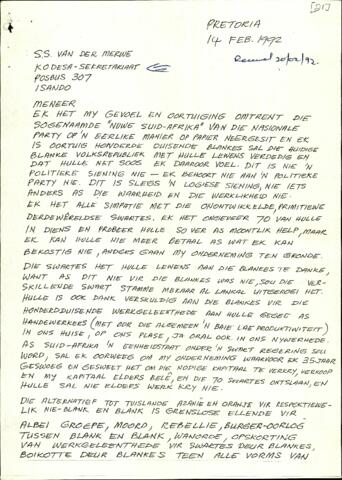 [D1]
PRETORIA
14 FEB. 1992
S.S. VAN DER MERWE
KODESA-SEKRETARIAAT
20/02/92.
POSBUS 307
ISANDO
MENEER
EK HET MY GEVOEL EN OORTUIGING OMTRENT DIE
SOGENAAMDE "NUWE SUID-AFRIKA" VAN DIE NASIONALE
PARTY OP 'N EERLIKE MANIER OP PAPIER NEERGESIT EN EK
IS OORTUIG HONDERDE DUISENDE BLANKES SAL DIE HUIDIGE
BLANKE VOLKSREPUBLIEK MET HULLE LEWENS VERDEDIG EN
DAT HULLE NET SOOS EK DAAROOR VOEL. DIT IS NIE 'N
POLITIEKE SIENING NIE — EK BEHOORT NIE AAN 'N POLITIEKE
PARTY NIE. DIT IS SLEGS 'N LOGIESE SIENING, NIE IETS
ANDERS AS DIE WAARHEID EN DIE WERKLIKHEID NIE.
EK HET ALLE SIMPATIE MET DIE ONONTWIKKELDE, PRIMITIEWE
DERDEWÊRELDSE SWARTES. EK HET ONGEVEER 70 VAN HULLE
IN DIENS EN PROBEER HULLE SO VER AS MOONTLIK HELP, MAAR
EK KAN HULLE NIE MEER BETAAL AS WAT EK KAN
BEKOSTIG NIE, ANDERS GAAN MY ONDERNEMING TEN GRONDE.
DIE SWARTES HET HULLE LEWENS AAN DIE BLANKES TE DANKE,
WANT AS DIT NIE VIR DIE BLANKES WAS NIE, SOU DIE VER-
SKILLENDE SWART STAMME MEKAAR AL LANKAL UITGEROEI HET.
HULLE IS OOK DANK VERSKULDIG AAN DIE BLANKES VIR DIE
HONDERDDUISENDE WERKGELEENTHEDE AAN HULLE GEGEE AS
HANDEWERKERS (MET OOR DIE ALGEMEEN 'N BAIE LAE PRODUKTIWITEIT)
IN ONS HUISE, OP ONS PLASE, JA ORAL OOR IN ONS NYWERHEDE.
AS SUID-AFRIKA 'N EENHEIDSTAAT ONDER 'N SWART REGERING SOU
WORD, SAL EK OORWEEG OM MY ONDERNEMING WAARVOOR EK 35 JAAR
GESWOEG EN GESWEET HET OM DIE NODIGE KAPITAAL TE VERKRY, VERKOOP
EN MY KAPITAAL ELDERS BELÊ, EN DIE 70 SWARTES ONTSLAAN, EN
HULLE SAL NIE ELDERS WERK KRY NIE.
DIE ALTERNATIEF TOT TUISLANDE AZANIE EN ORANJE VIR RESPEKTIEWE-
LIK NIE-BLANK EN BLANK IS GRENSLOSE ELLENDE VIR
ALBEI GROEPE, MOORD, REBELLIE, BURGER-OORLOG
TUSSEN BLANK EN BLANK, WANORDE, OPSKORTING
VAN WERKGELEENTHEDE VIR SWARTES DEUR BLANKES,
BOIKOTTE DEUR BLANKES TEEN ALLE VORMS VAN